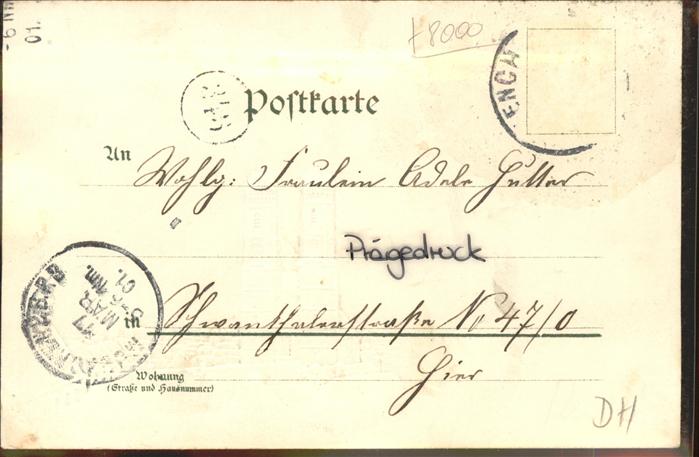 -6 NM
01.
+8000
ENCH
Postkarte
An
Wohlg: Fräulein Adele Hutter
Prägedruck
17
MAR.
5-6 Nm.
01.
in Schwanthalerstraße No 47/0
Hier
Wohnung
(Straße und Hausnummer)
DH